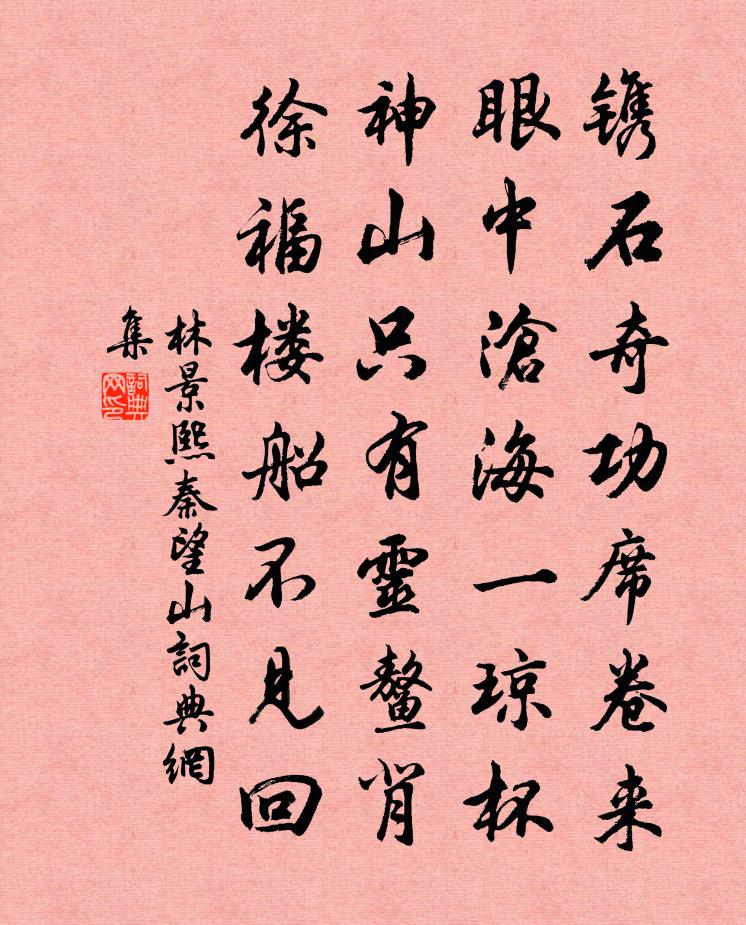 镌石奇功席卷来
眼中滄海一琼杯
神山只有靈鳌背
徐福楼船不见回
林景熙秦望山詞典網
集
詞典
网印